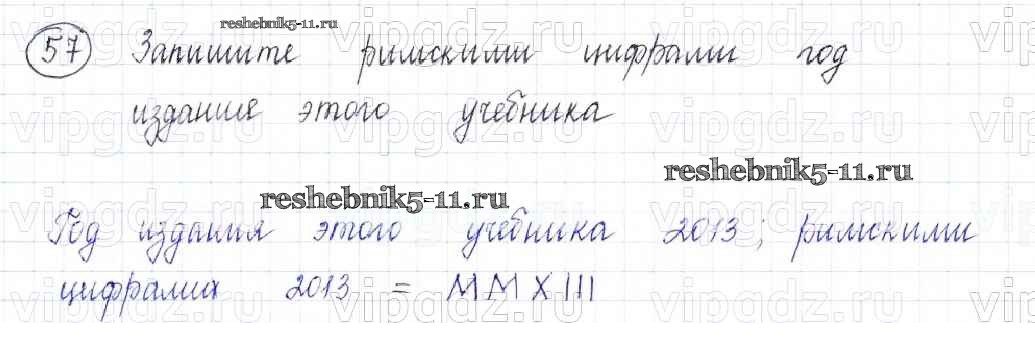 reshebnik5-11.ru
57 Запишите римскими цифрами год
издание этого учебника
reshebnik5-11.ru
reshebnik5-11.ru
Год издания этого учебника 2013; римскими
цифрами 2013 = MMXIII